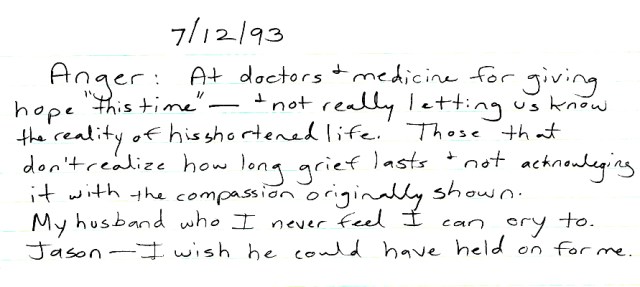 7/12/93
Anger: At doctors + medicine for giving
hope "this time" — + not really letting us know
the reality of his shortened life. Those that
don't realize how long grief lasts + not acknowleging
it with the compassion originally shown.
My husband who I never feel I can cry to.
Jason — I wish he could have held on for me.